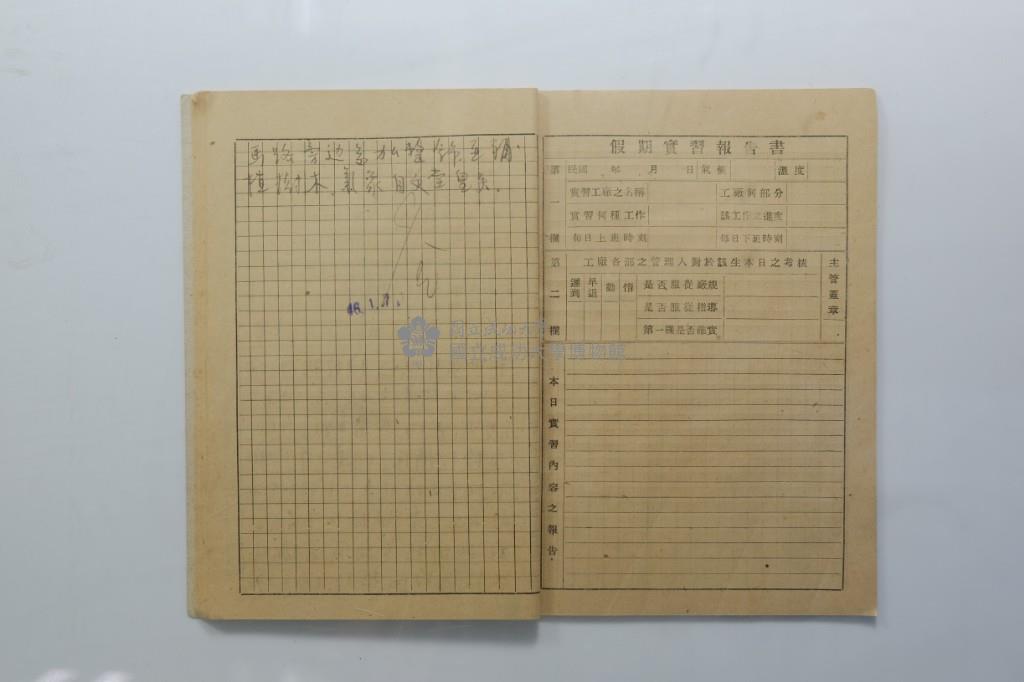 馬路旁邊
植樹木、氣象
46.1.
國立成功大學
國立成功大學博物館
假期實習報告書
第一欄
民國 年 月 日 氣候 溫度
實習工廠之名稱 工廠何部分
實習何種工作 該工作之進度
每日上班時刻 每日下班時刻
第二欄
工廠各部之管理人對於該生本日之考核 主管蓋章
遲到 早退 勤 惰
是否服從廠規
是否服從指導
第一欄是否確實
本日實習內容之報告